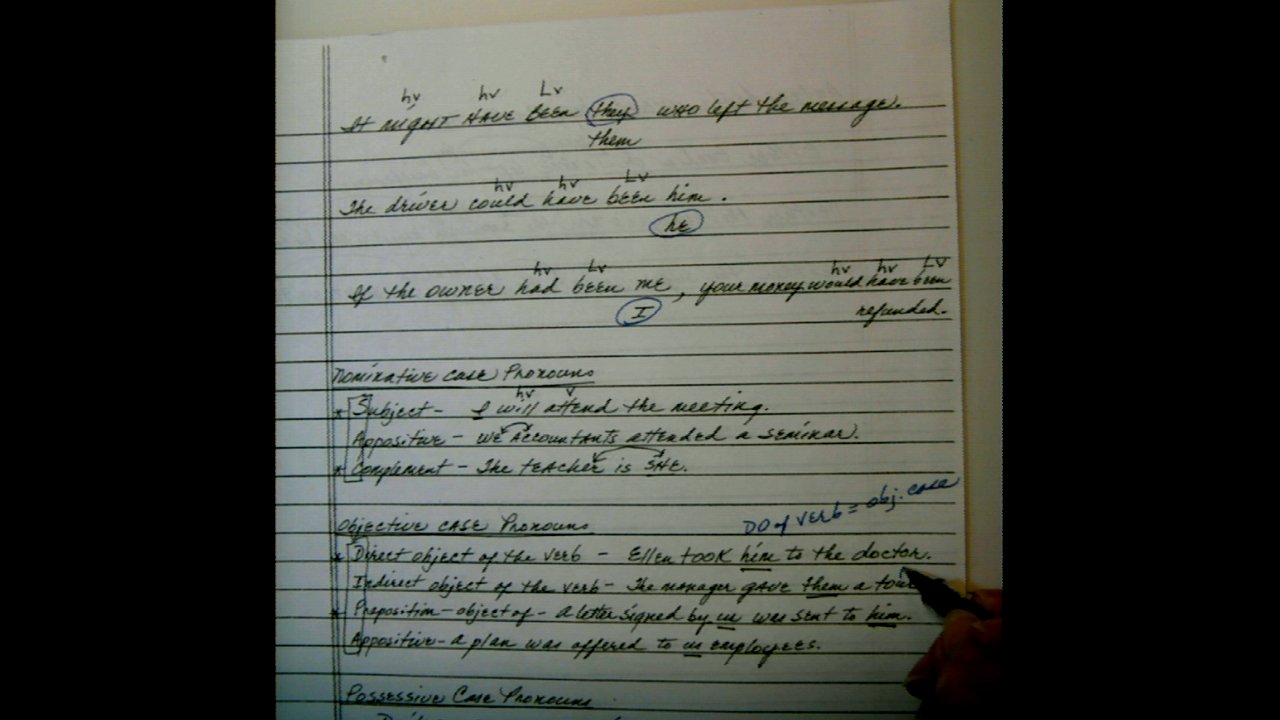 hv hv Lv
It might HAVE BEEN they who left the message.
them
hv hv Lv
The driver could have been him.
he
hv Lv hv hv LV
If the owner had been me, your money would have been
I refunded.
Nominative Case Pronouns
hv v
* Subject - I will attend the meeting.
Appositive - We Accountants attended a seminar.
* Complement - The teacher is SHE.
DO of verb = obj. case
Objective Case Pronouns
* Direct object of the verb - Ellen took him to the doctor.
Indirect object of the verb - The manager gave them a
* Preposition - object of - a letter signed by us was sent to him.
Appositive - a plan was offered to us employees.
Possessive Case Pronouns